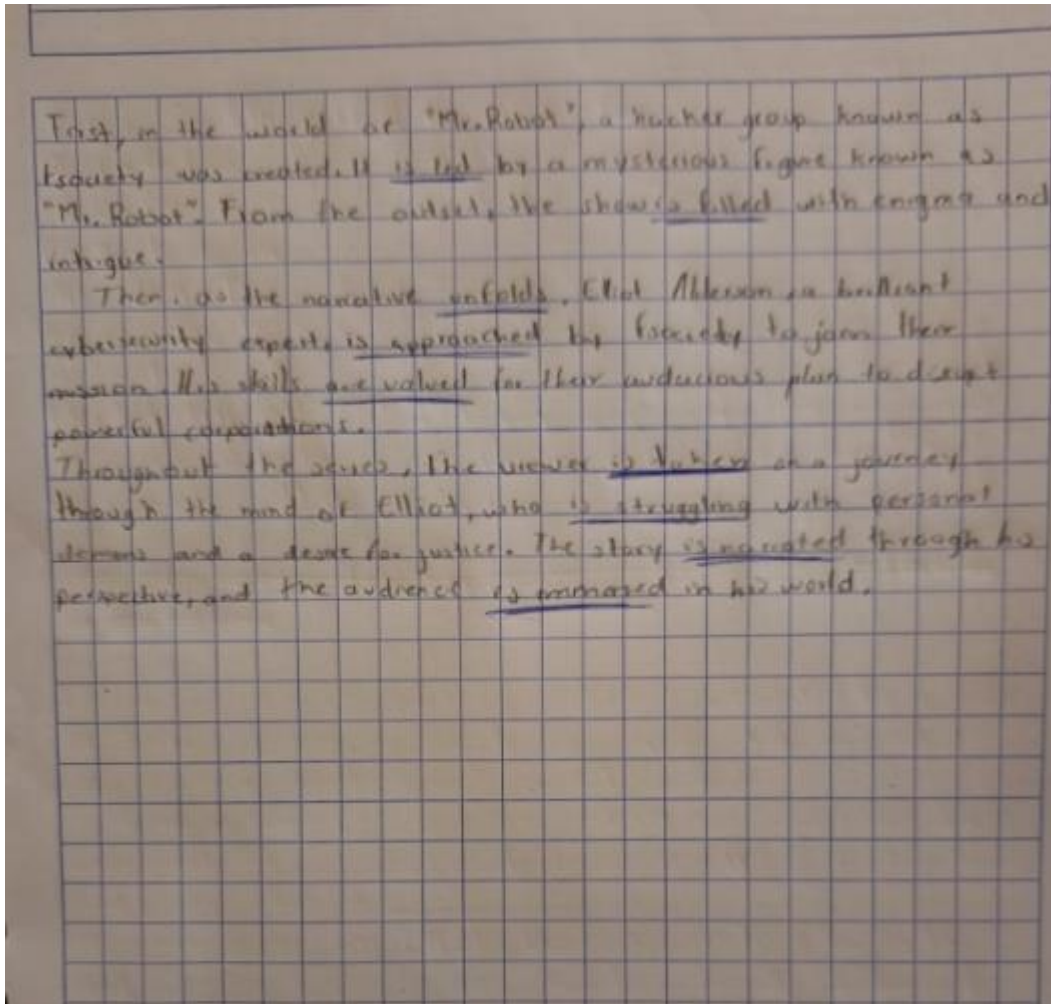 First, in the world of "Mr. Robot", a hacker group known as
fsociety was created. It is led by a mysterious figure known as
"Mr. Robot". From the outset, the show is filled with enigma and
intrigue.
Then, as the narrative unfolds, Elliot Alderson, a brilliant
cybersecurity expert, is approached by fsociety to join their
mission. His skills are valued for their audacious plan to disrupt
powerful corporations.
Throughout the series, the viewer is taken on a journey
through the mind of Elliot, who is struggling with personal
demons and a desire for justice. The story is narrated through his
perspective, and the audience is immersed in his world.